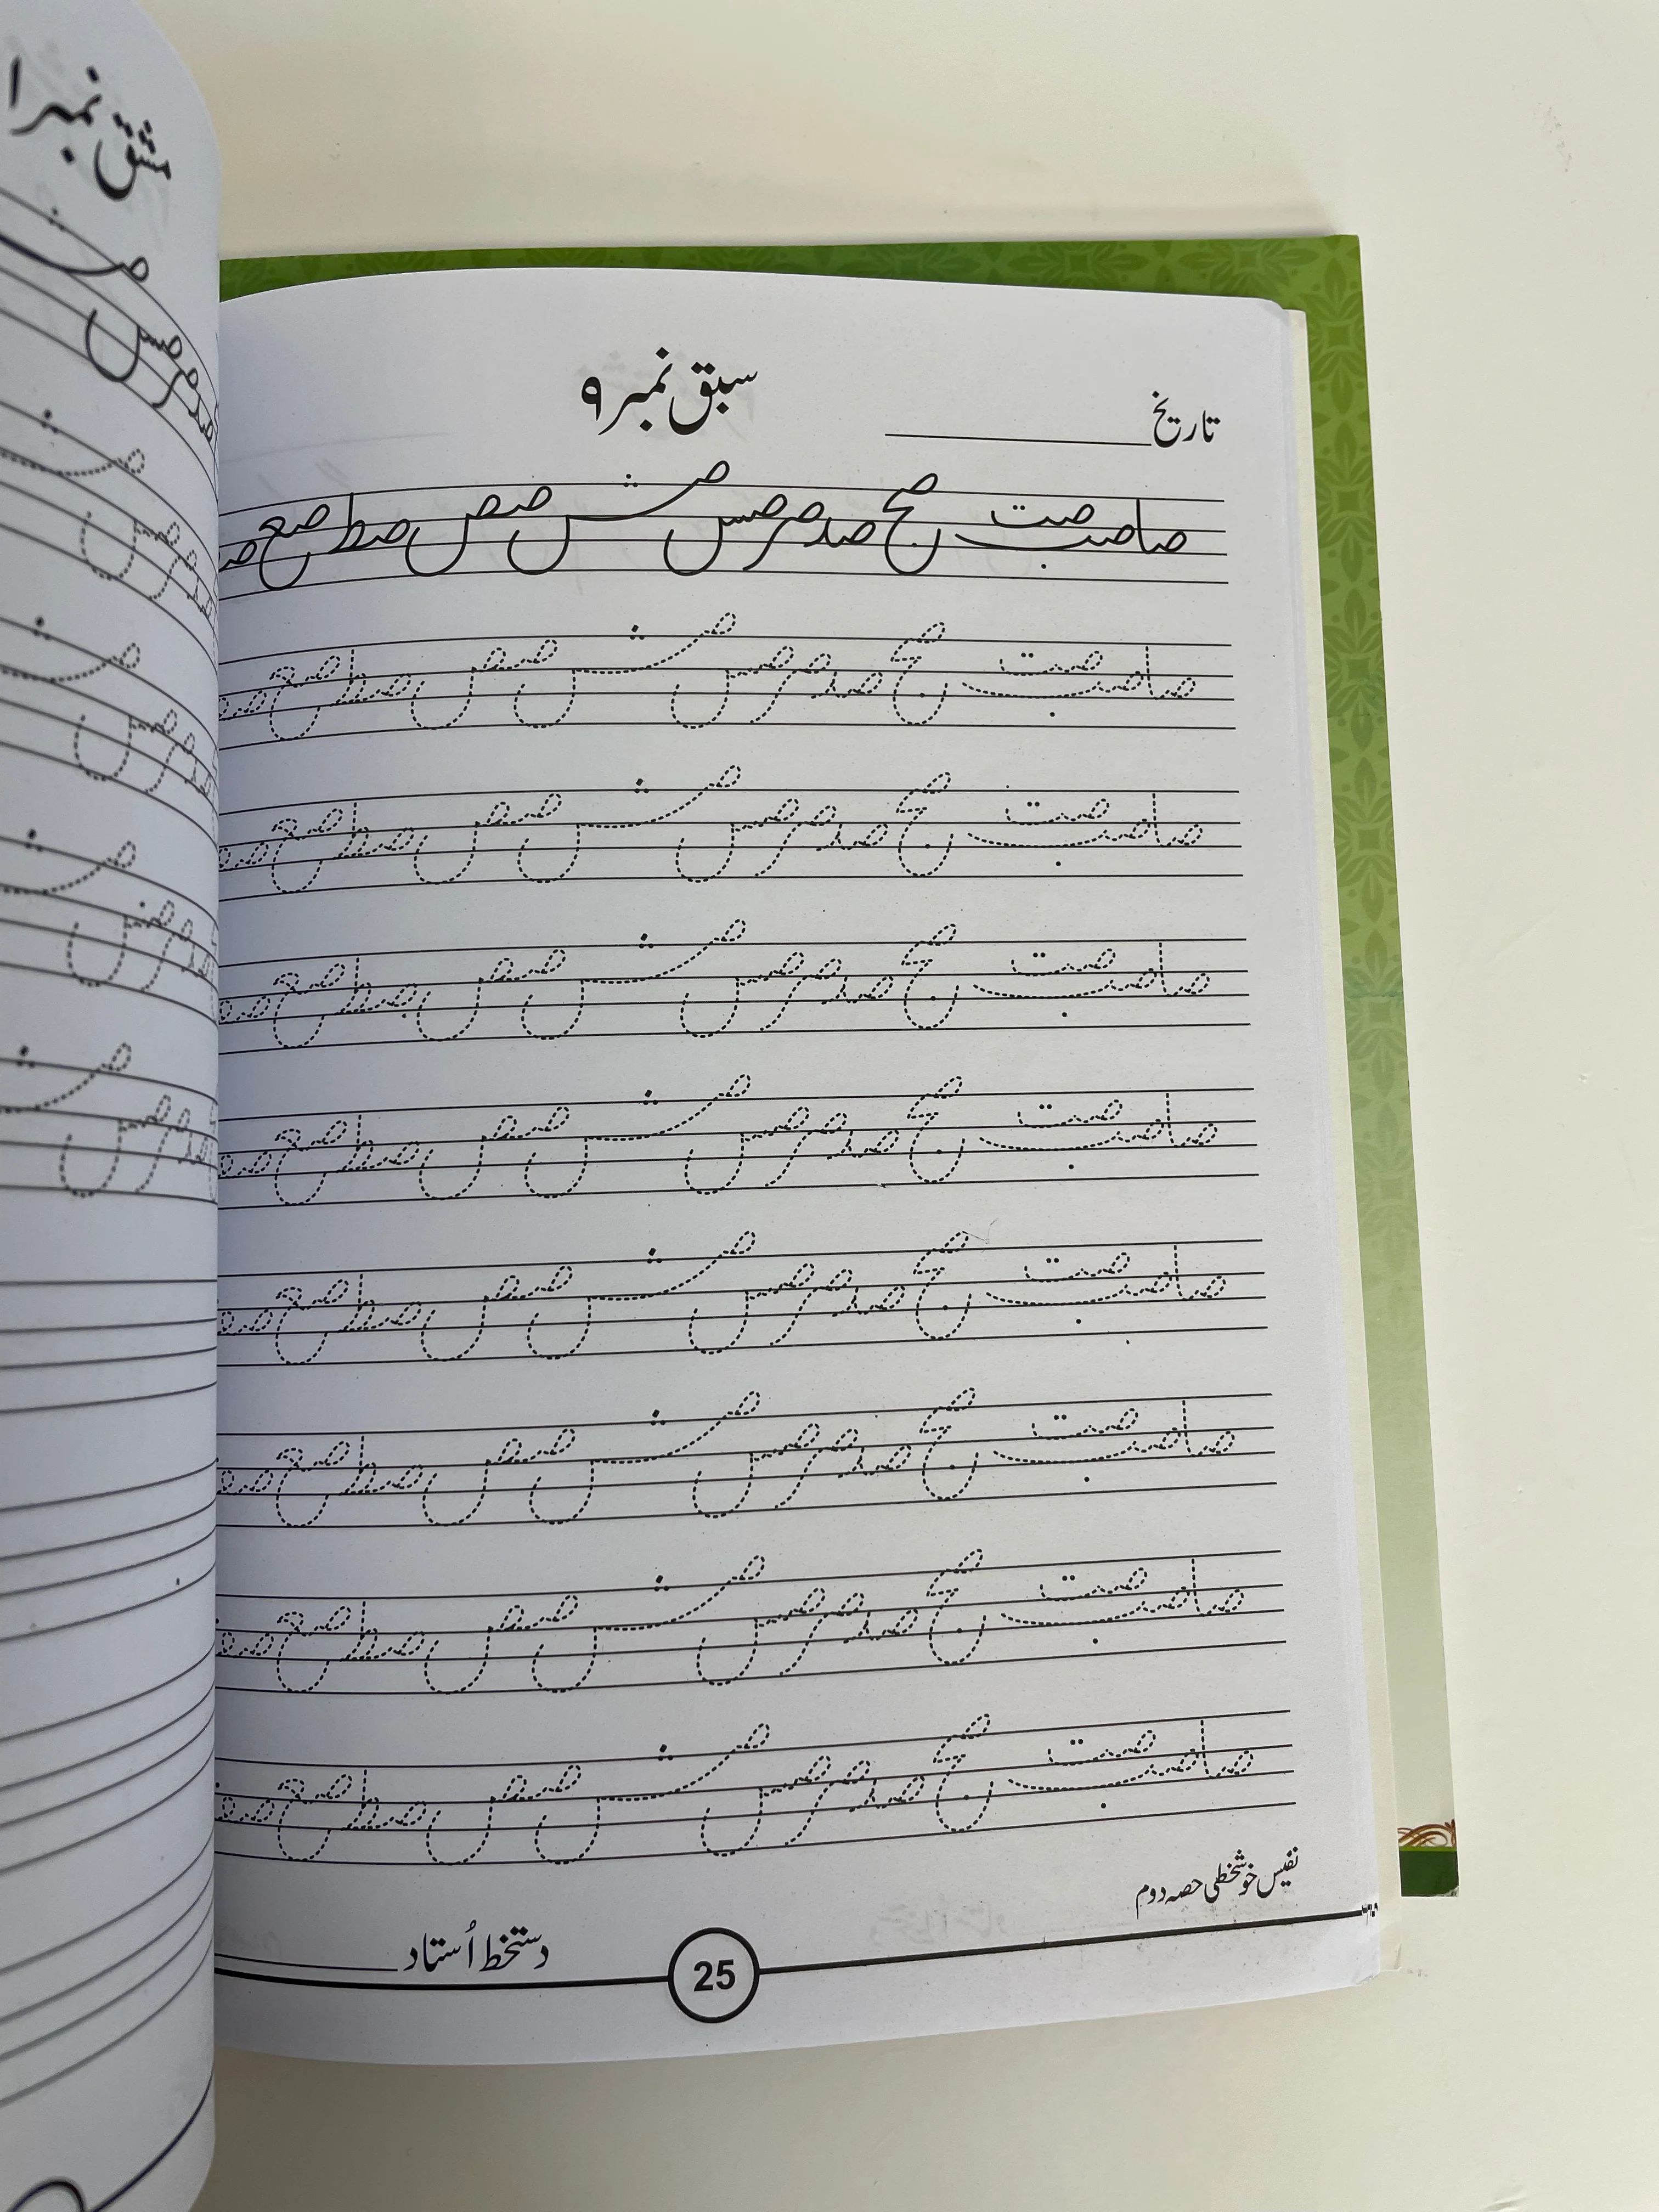 مشق نمبر ا
تاریخ
سبق نمبر ۹
صا صب صت صج صد صر صس صش صص صط صع
صا صب صت صج صد صر صس صش صص صط صع
صا صب صت صج صد صر صس صش صص صط صع
صا صب صت صج صد صر صس صش صص صط صع
صا صب صت صج صد صر صس صش صص صط صع
صا صب صت صج صد صر صس صش صص صط صع
صا صب صت صج صد صر صس صش صص صط صع
صا صب صت صج صد صر صس صش صص صط صع
صا صب صت صج صد صر صس صش صص صط صع
نفیس خوشخطی حصہ دوم
دستخط اُستاد
25